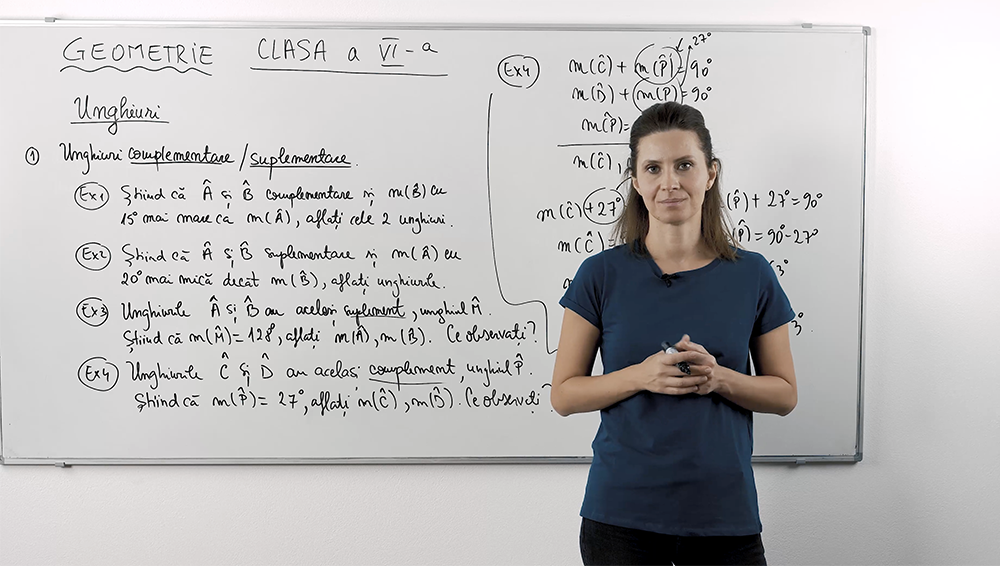 GEOMETRIE CLASA a VI-a
Unghiuri
① Unghiuri complementare/suplementare.
Ex1 Știind că Â și B̂ complementare și m(B̂) cu
15° mai mare ca m(Â), aflați cele 2 unghiuri.
Ex2 Știind că Â și B̂ suplementare și m(Â) cu
20° mai mică decât m(B̂), aflați unghiurile.
Ex3 Unghiurile Â și B̂ au același suplement, unghiul M̂.
Știind că m(M̂) = 128°, aflați m(Â), m(B̂). Ce observați?
Ex4 Unghiurile Ĉ și D̂ au același complement, unghiul P̂.
Știind că m(P̂) = 27°, aflați m(Ĉ), m(D̂). Ce observați?
27°
Ex4 m(Ĉ) + m(P̂) = 90°
m(D̂) + m(P̂) = 90°
m(P̂) =
m(Ĉ),
m(Ĉ) + 27° (P̂) + 27° = 90°
m(Ĉ) (P̂) = 90° - 27°
3°
3°.